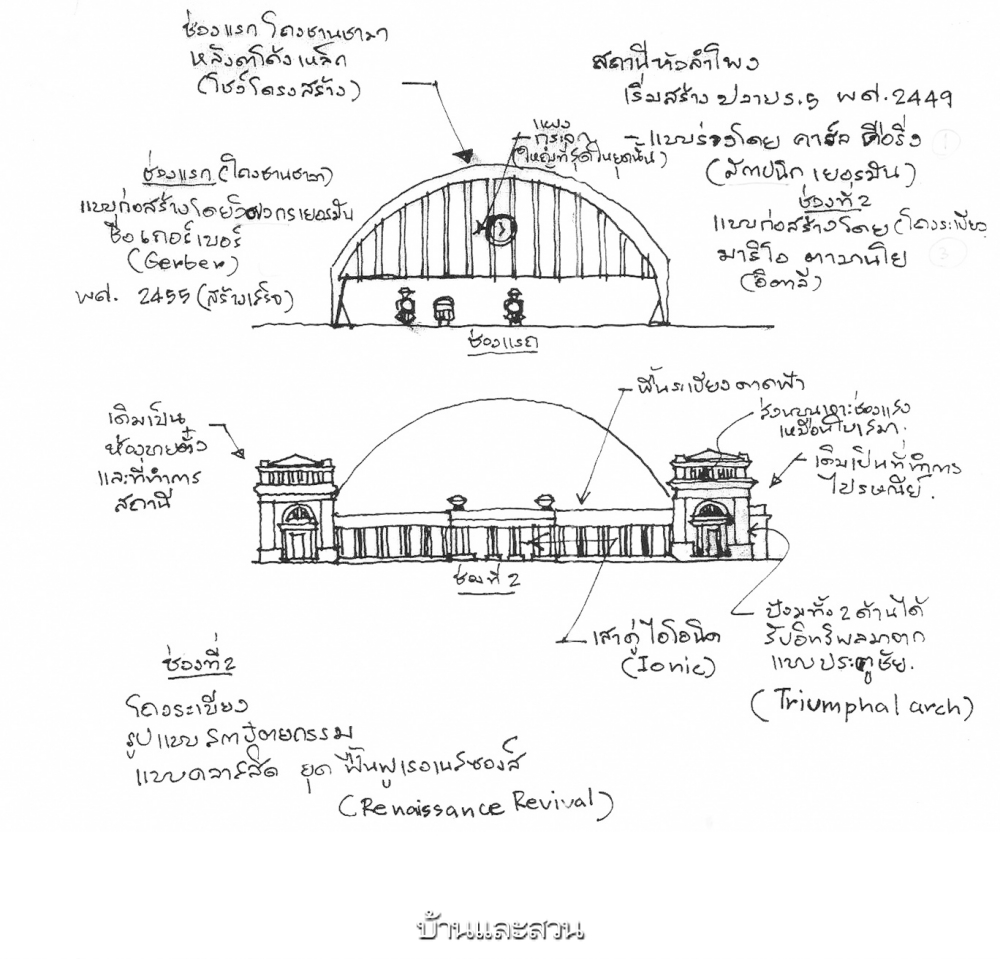 ช่วงแรก โถงชานชาลา
หลังคาโค้งเหล็ก
(โชว์โครงสร้าง)
สถานีหัวลำโพง
เริ่มสร้าง ปลาย ร.5 พศ.2449
- แบบร่างโดย คาร์ล เดอริ่ง
(สถาปนิก เยอรมัน)
ช่วงที่ 2
แบบก่อสร้างโดย (โถงระเบียง
มาริโอ ตามานโย
(อิตาลี)
แผง
กระจก
(ใหญ่ที่สุดในยุคนั้น)
ช่วงแรก (โถงชานชาลา)
แบบก่อสร้างโดยวิศวกรเยอรมัน
ชื่อ เกอร์เบอร์
(Gerber)
พศ. 2455 (สร้างเสร็จ)
ช่วงแรก
พื้นระเบียงดาดฟ้า
ช่องแสง
เหมือนใบเสมา.
เดิมเป็น
ห้องขายตั๋ว
และที่ทำการ
สถานี
เดิมเป็นที่ทำการ
ไปรษณีย์.
ช่วงที่ 2
เสาคู่ ไอโอนิค
(Ionic)
ป้อมทั้ง 2 ด้านได้
รับอิทธิพลมาจาก
แบบประตูชัย.
(Triumphal arch)
ช่วงที่ 2
โถงระเบียง
รูปแบบ สถาปัตยกรรม
แบบคลาสสิค ยุค ฟื้นฟูเรอเนสซองส์
(Renaissance Revival)
บ้านและสวน